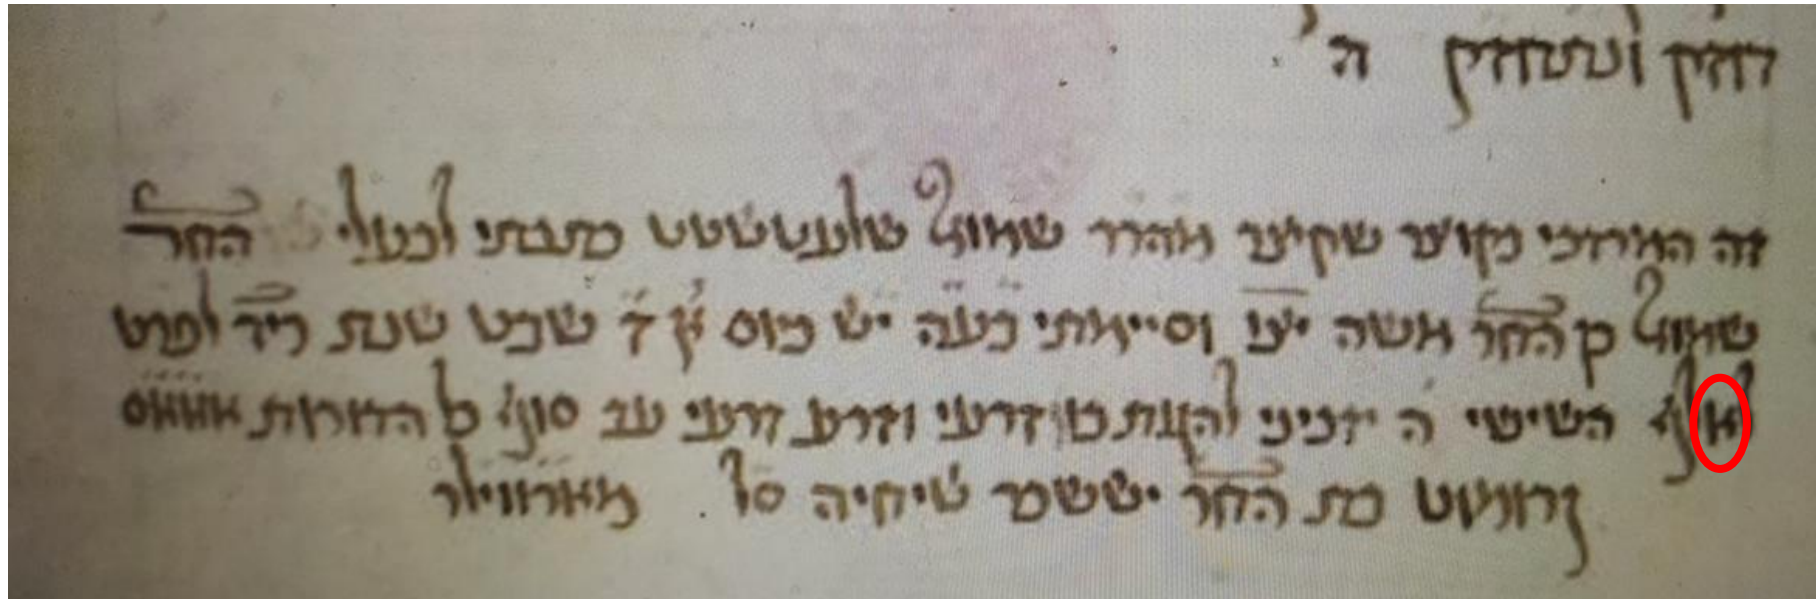 חזק ונתחזק ה'
זה המרדכי קוצר שקיצר מהרר שמואל שלעטשטט כתבתי לבעלי החר
שמואל בן החר משה יצו וסיימתי בעה יש ביום ד שבט שנת ריד לפרט
לאלף השישי ה יזכיני להגות בו זרעי וזרע זרעי עב סוף כל הדורות אאאס
בת החר יששכר שיחיה סל מארווילר